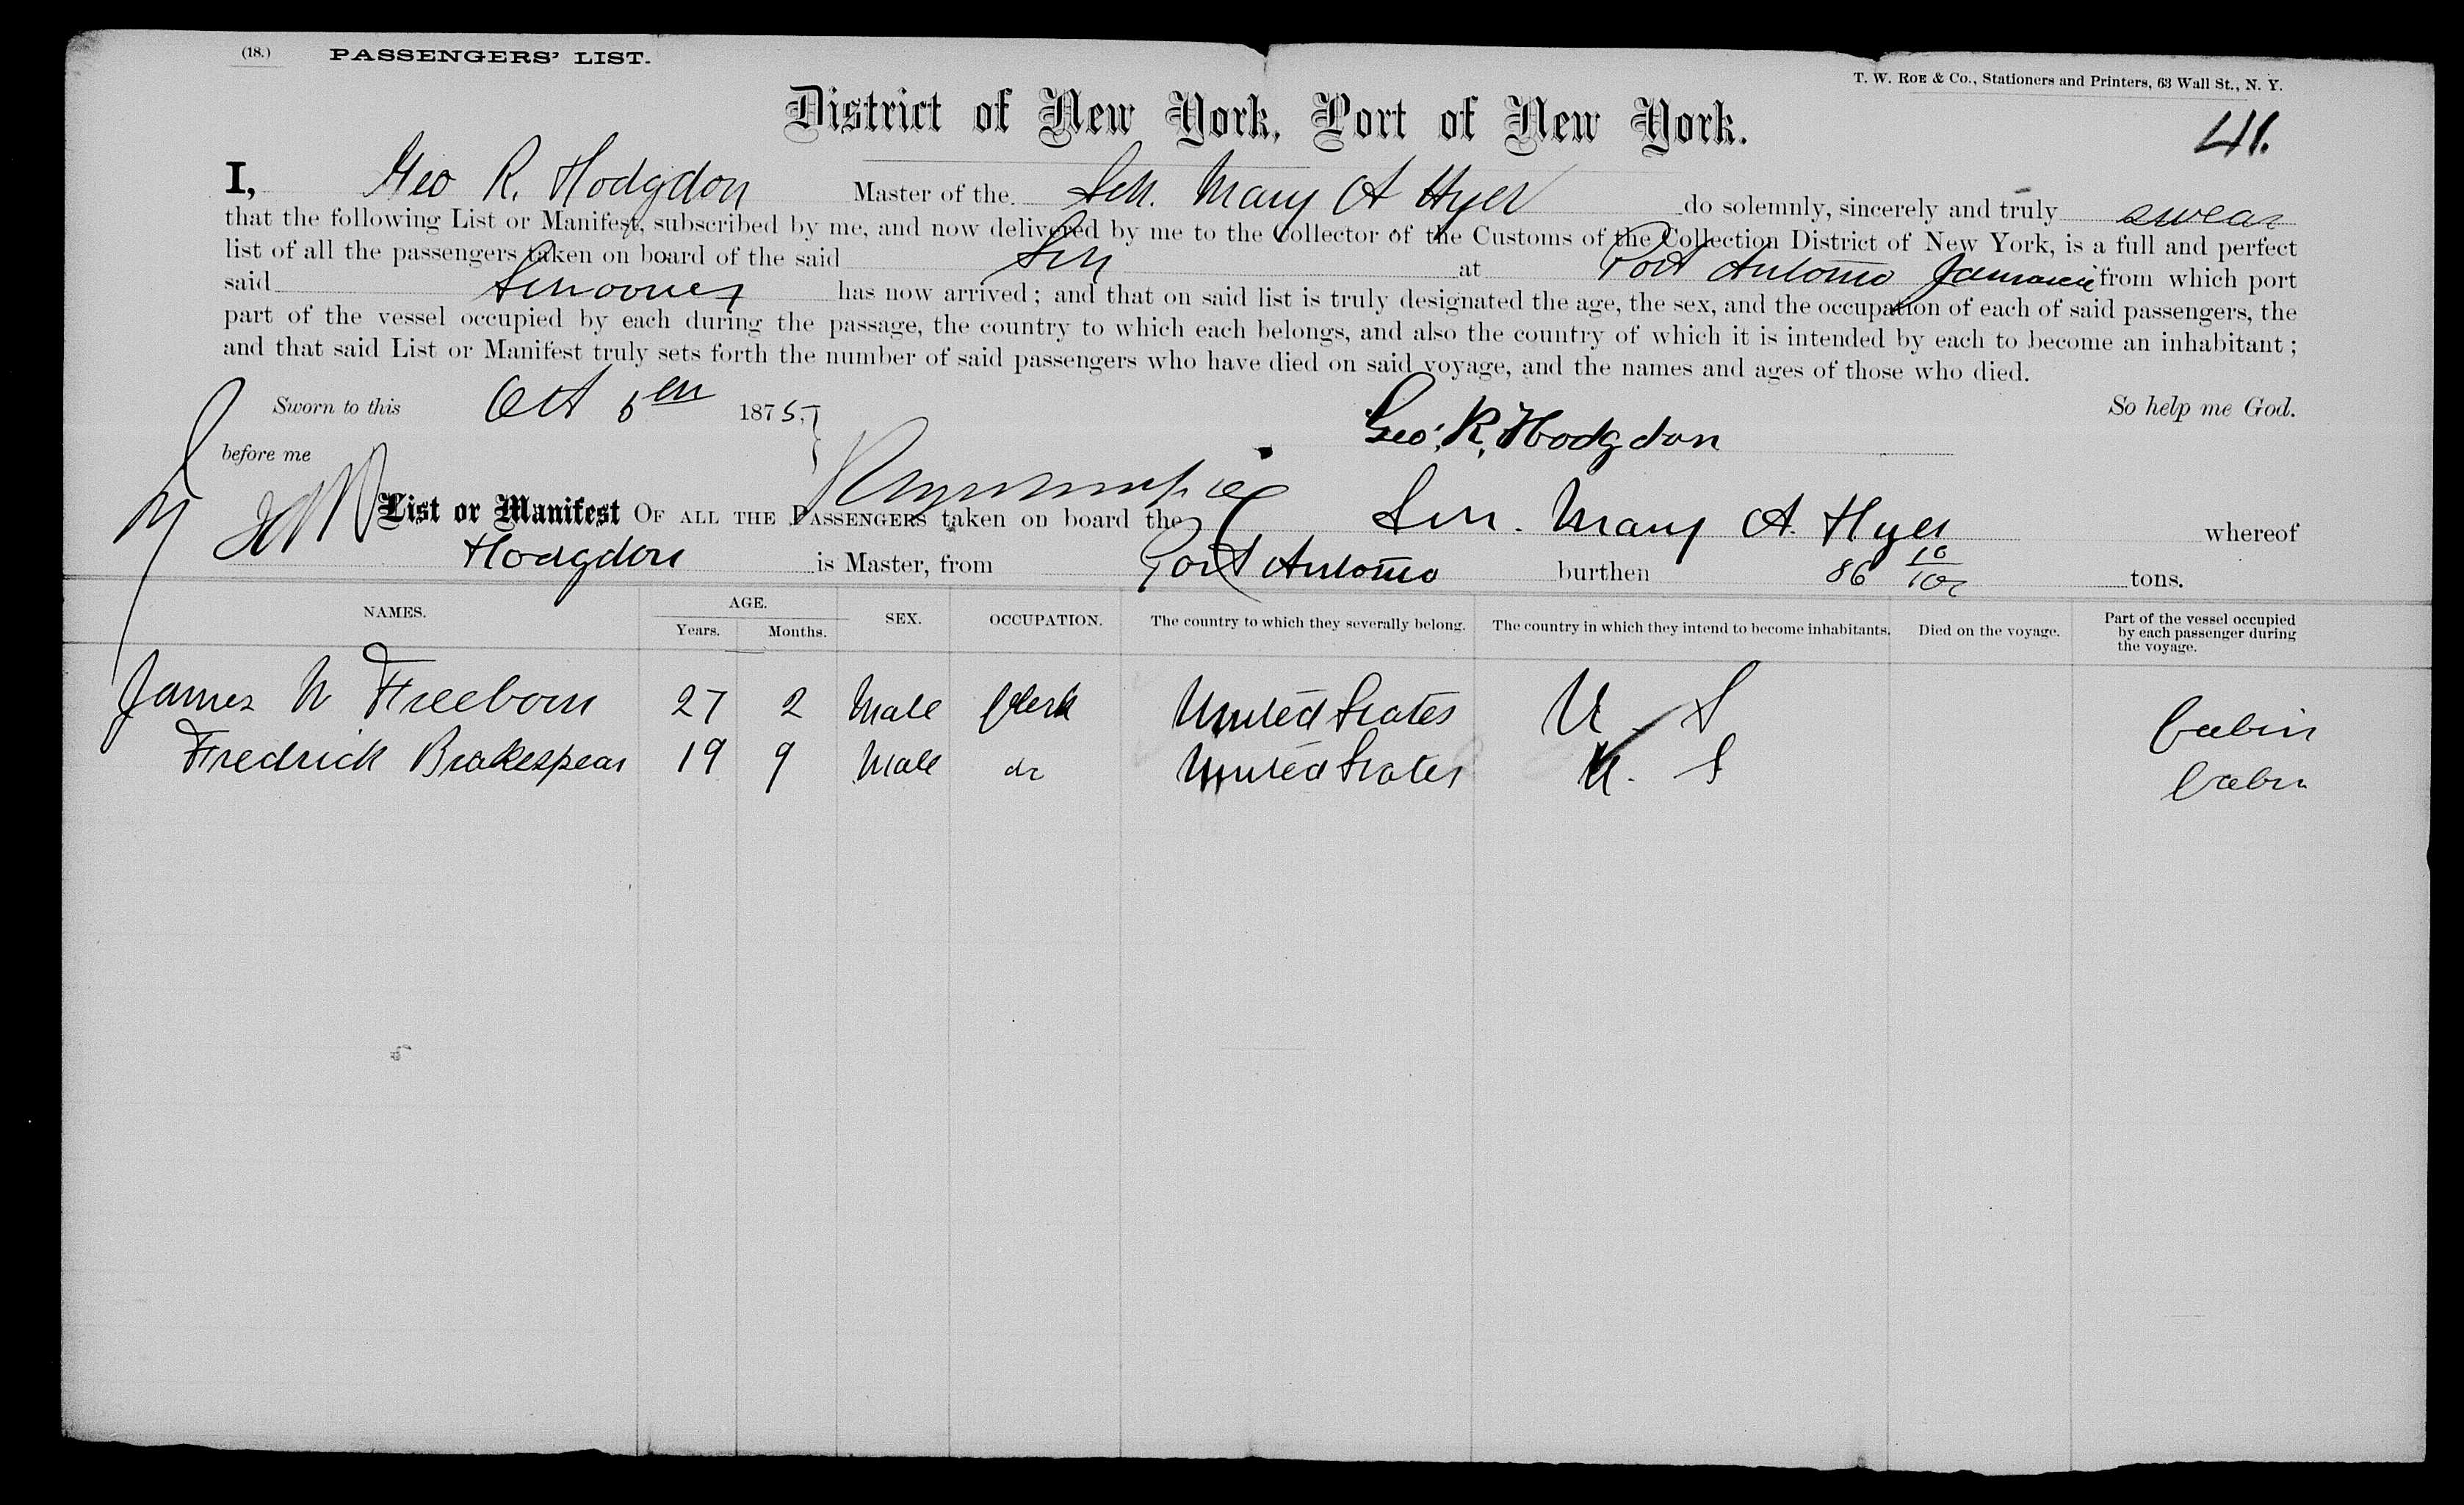 (18.) PASSENGERS' LIST.
T. W. Roe & Co., Stationers and Printers, 63 Wall St., N. Y.
District of New York, Port of New York.
41.
I, Geo R. Hodgdon Master of the Sch. Mary A Hyer do solemnly, sincerely and truly swear
that the following List or Manifest, subscribed by me, and now delivered by me to the Collector of the Customs of the Collection District of New York, is a full and perfect
list of all the passengers taken on board of the said Sch at Port Antonio Jamaica from which port
said Schooner has now arrived; and that on said list is truly designated the age, the sex, and the occupation of each of said passengers, the
part of the vessel occupied by each during the passage, the country to which each belongs, and also the country of which it is intended by each to become an inhabitant;
and that said List or Manifest truly sets forth the number of said passengers who have died on said voyage, and the names and ages of those who died.
Sworn to this Oct 5th 1875. So help me God.
Geo. R. Hodgdon
before me
List or Manifest Of all the Passengers taken on board the Sch. Mary A. Hyer whereof
Hodgdon is Master, from Port Antonio burthen 86 10/100 tons.
NAMES. AGE. SEX. OCCUPATION. The country to which they severally belong. The country in which they intend to become inhabitants. Died on the voyage. Part of the vessel occupied by each passenger during the voyage.
Years. Months.
James W Freeborn 27 2 Male Clerk United States U. S Cabin
Fredrick Brakespear 19 9 Male do United States U. S Cabin